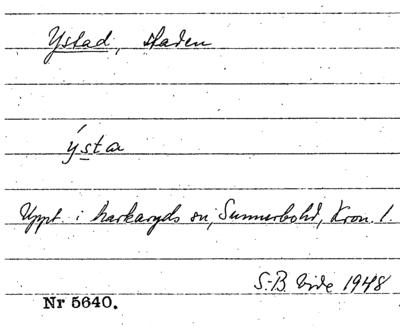 Ystad, staden
ýsta
Uppt. i Markaryds sn, Sunnerbohd, Kron. l.
S.-B. Vide 1948
Nr 5640.